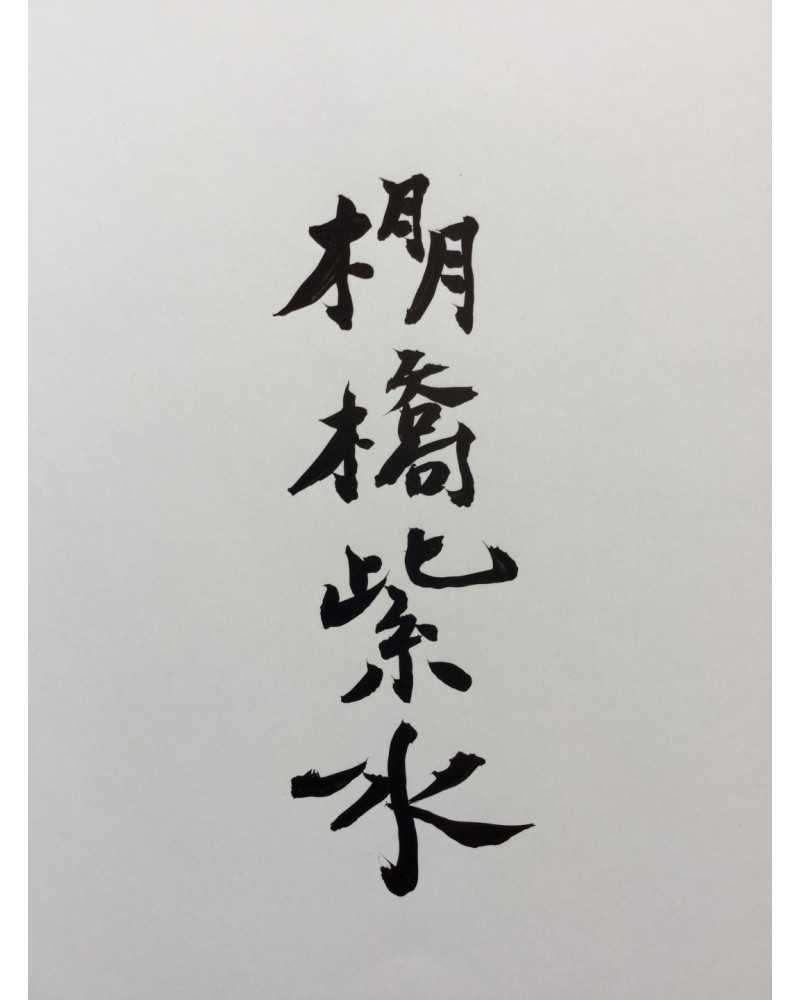 棚橋紫水